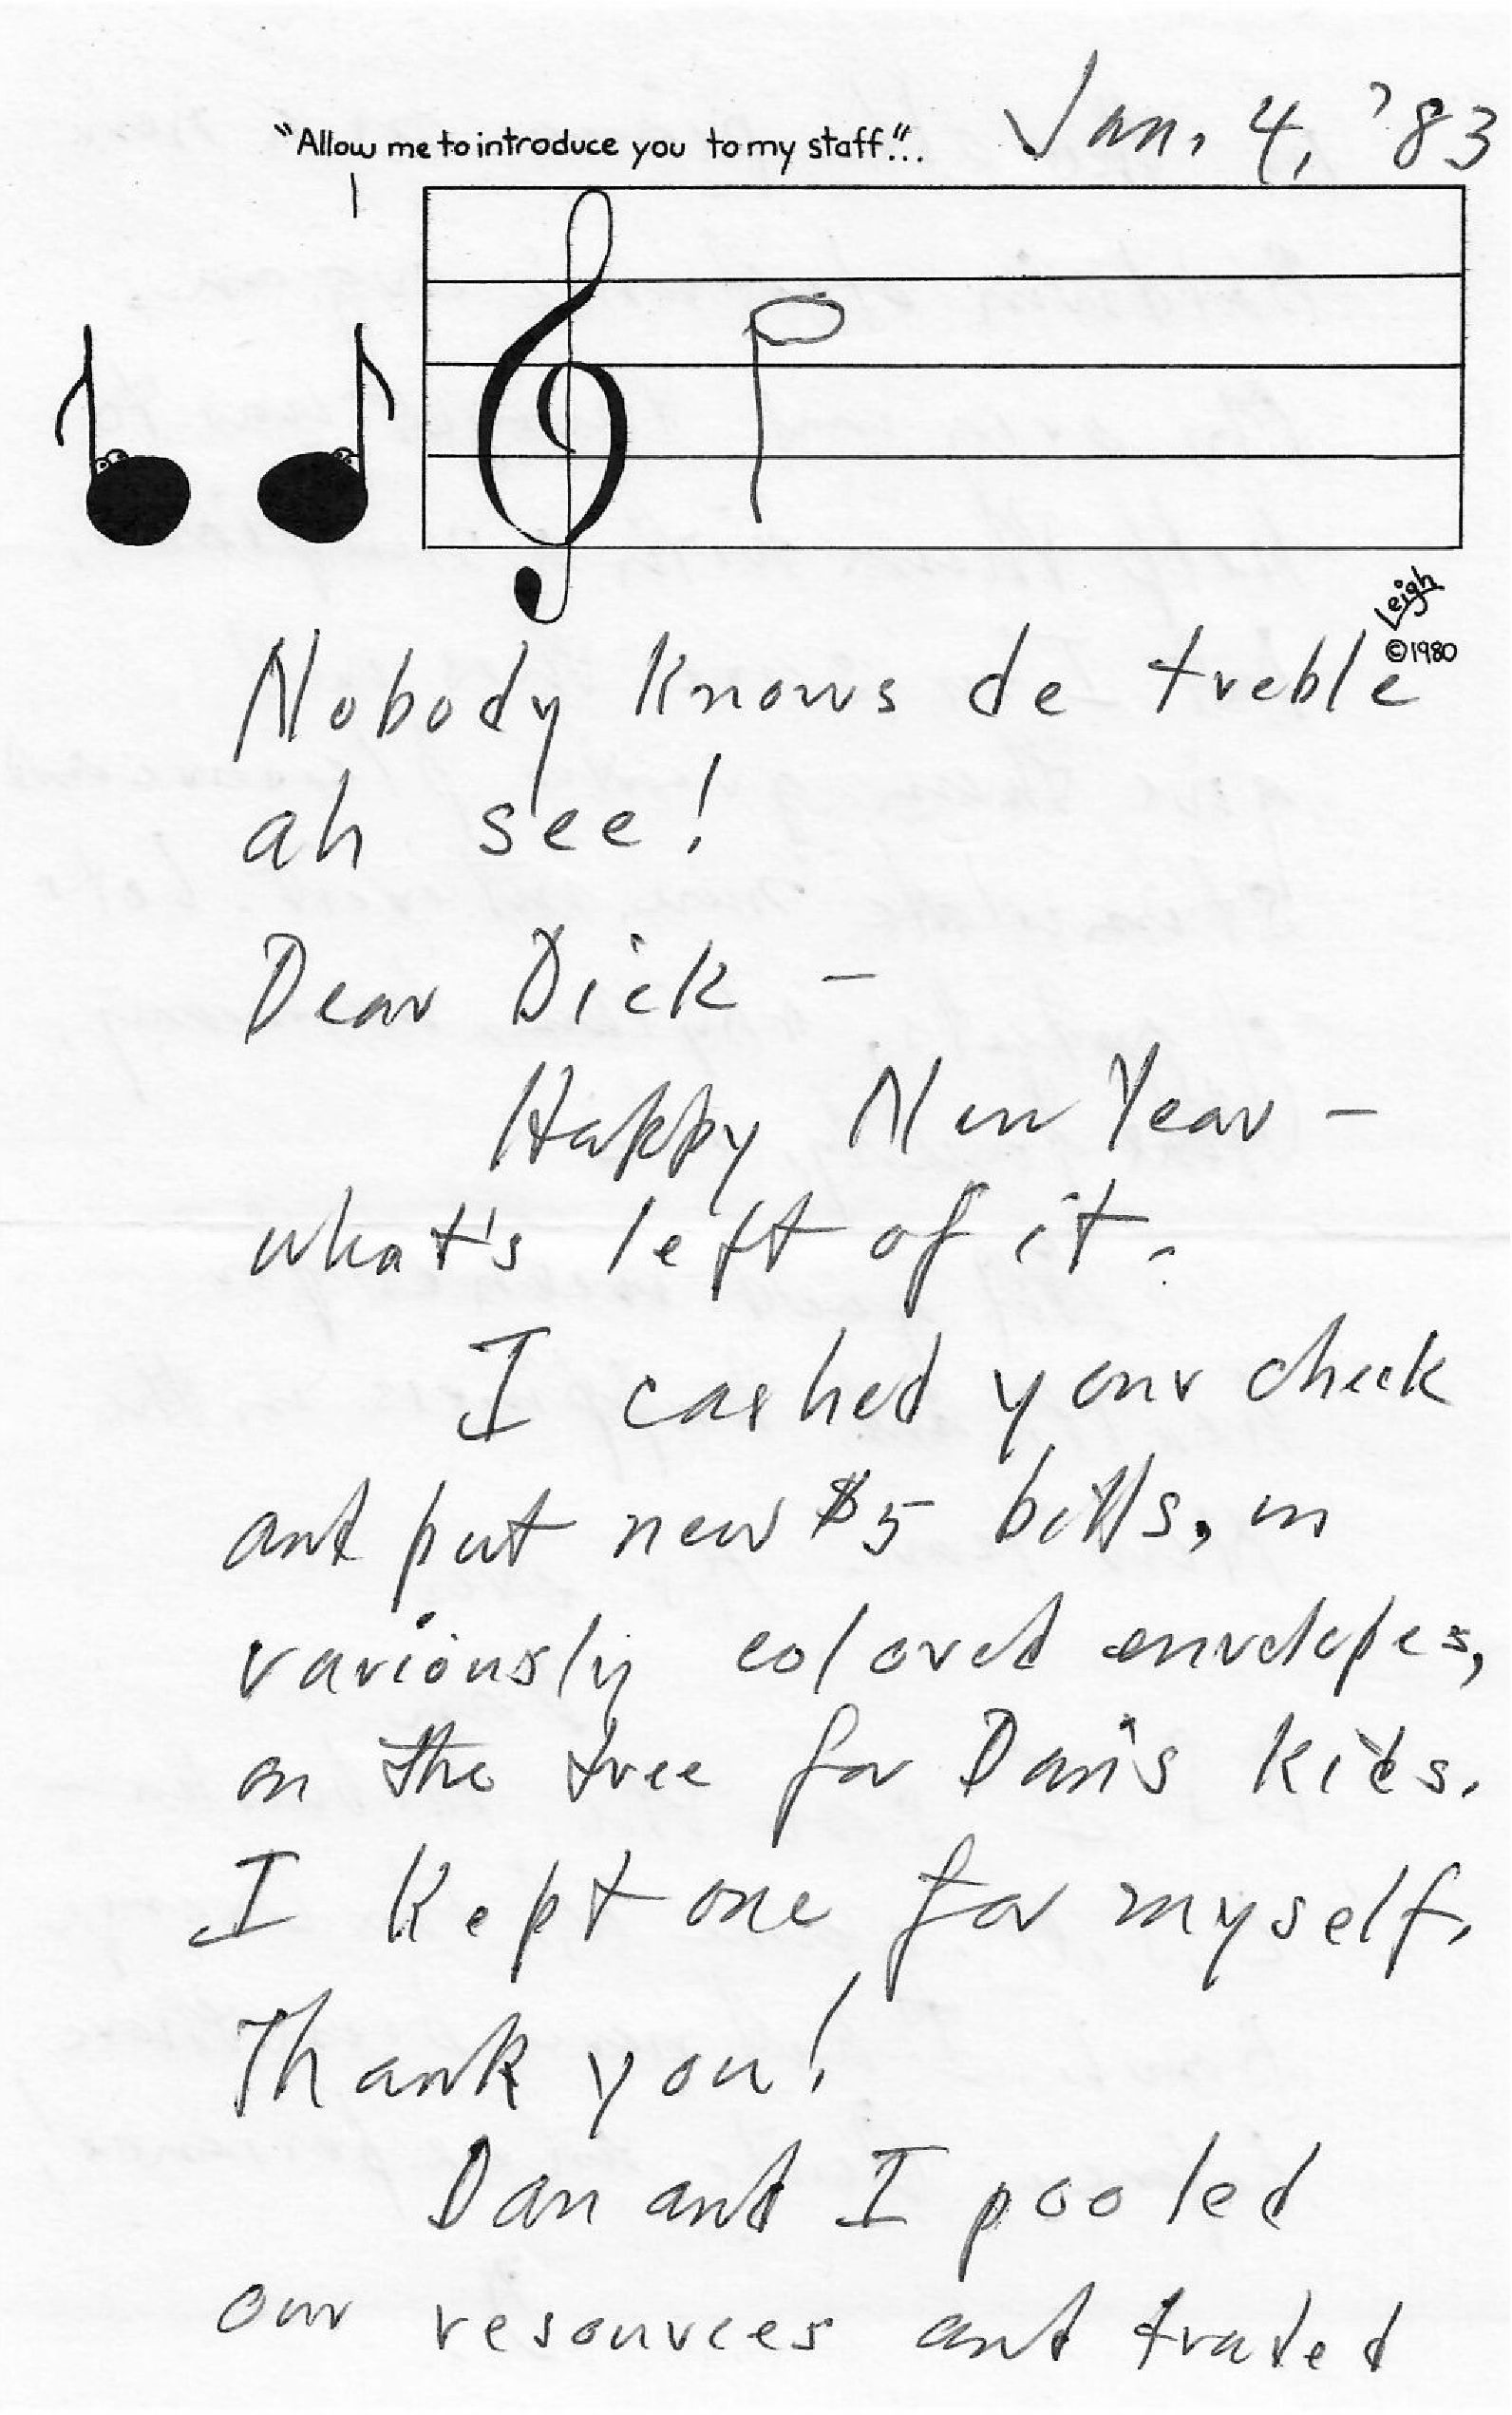 Jan. 4, '83
"Allow me to introduce you to my staff"...
Leigh
©1980
Nobody knows de treble
ah see!
Dear Dick –
Happy New Year –
what's left of it.
I cashed your check
and put new $5 bills, in
variously colored envelopes,
on the tree for Dan's kids.
I kept one for myself.
Thank you!
Dan and I pooled
our resources and traded